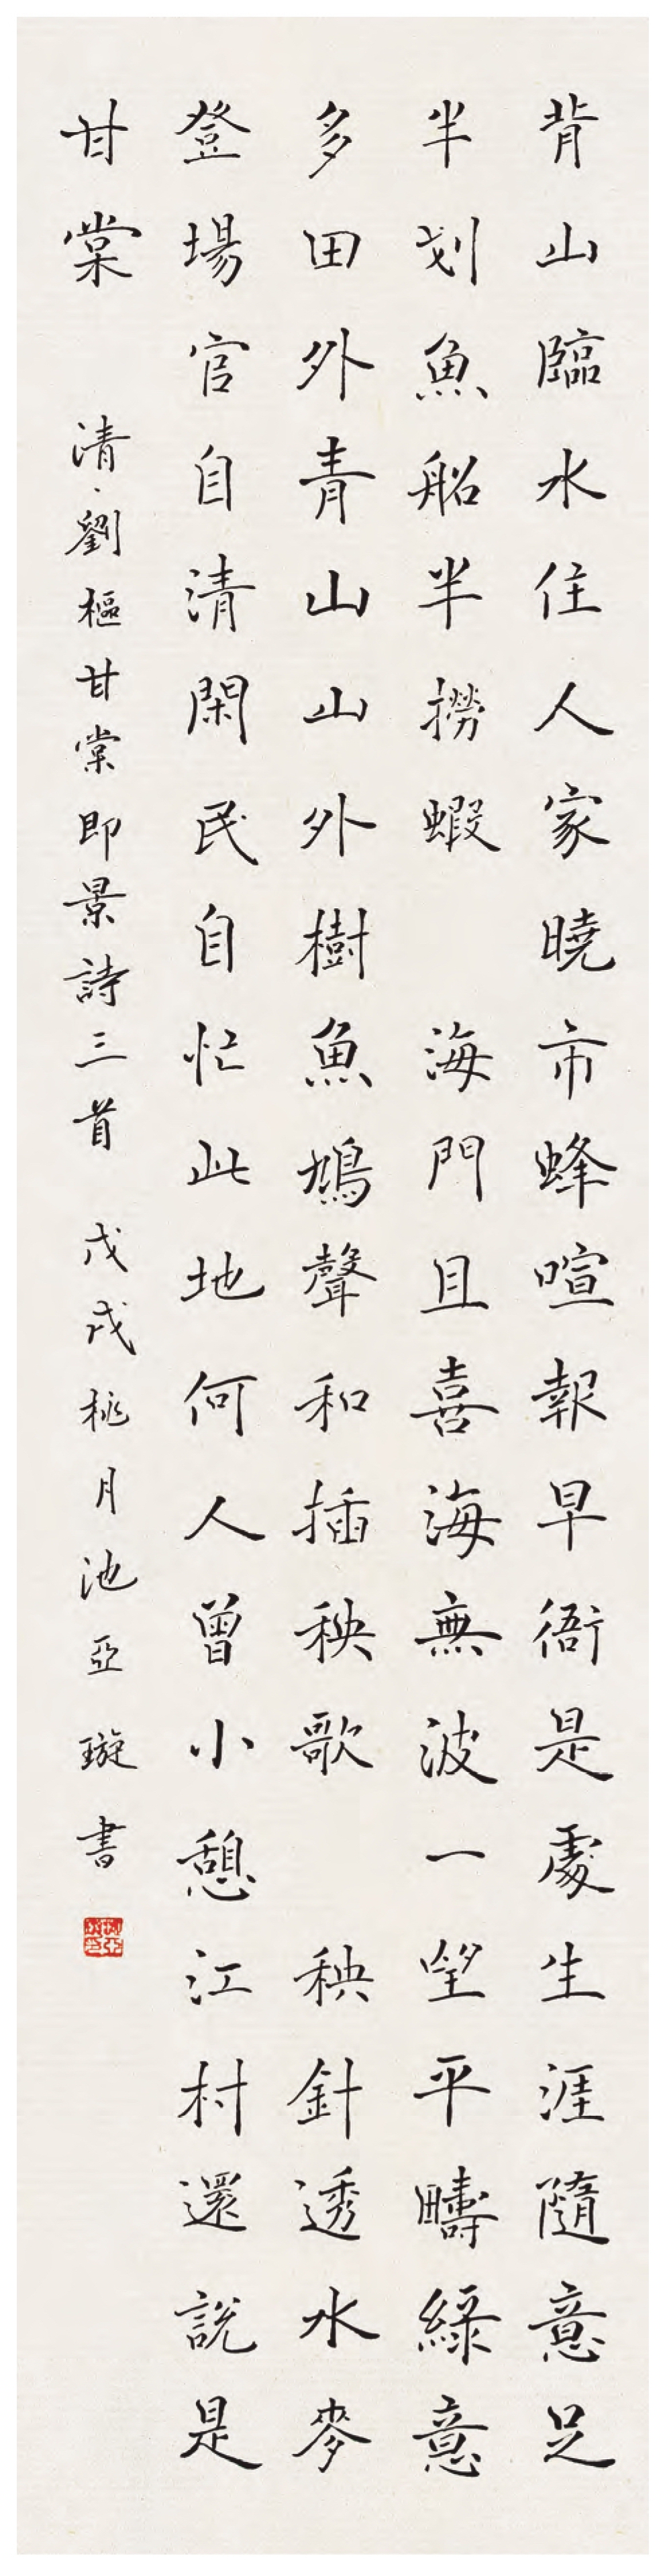 背山臨水住人家曉市蜂喧報早衙是處生涯隨意足
半划魚船半撈蝦　海門且喜海無波一望平疇綠意
多田外青山山外樹魚鳩聲和插秧歌　秧針透水麥
登場官自清閑民自忙此地何人曾小憩江村還說是
甘棠　清·劉樞甘棠即景詩三首　戊戌桃月池亞璇書